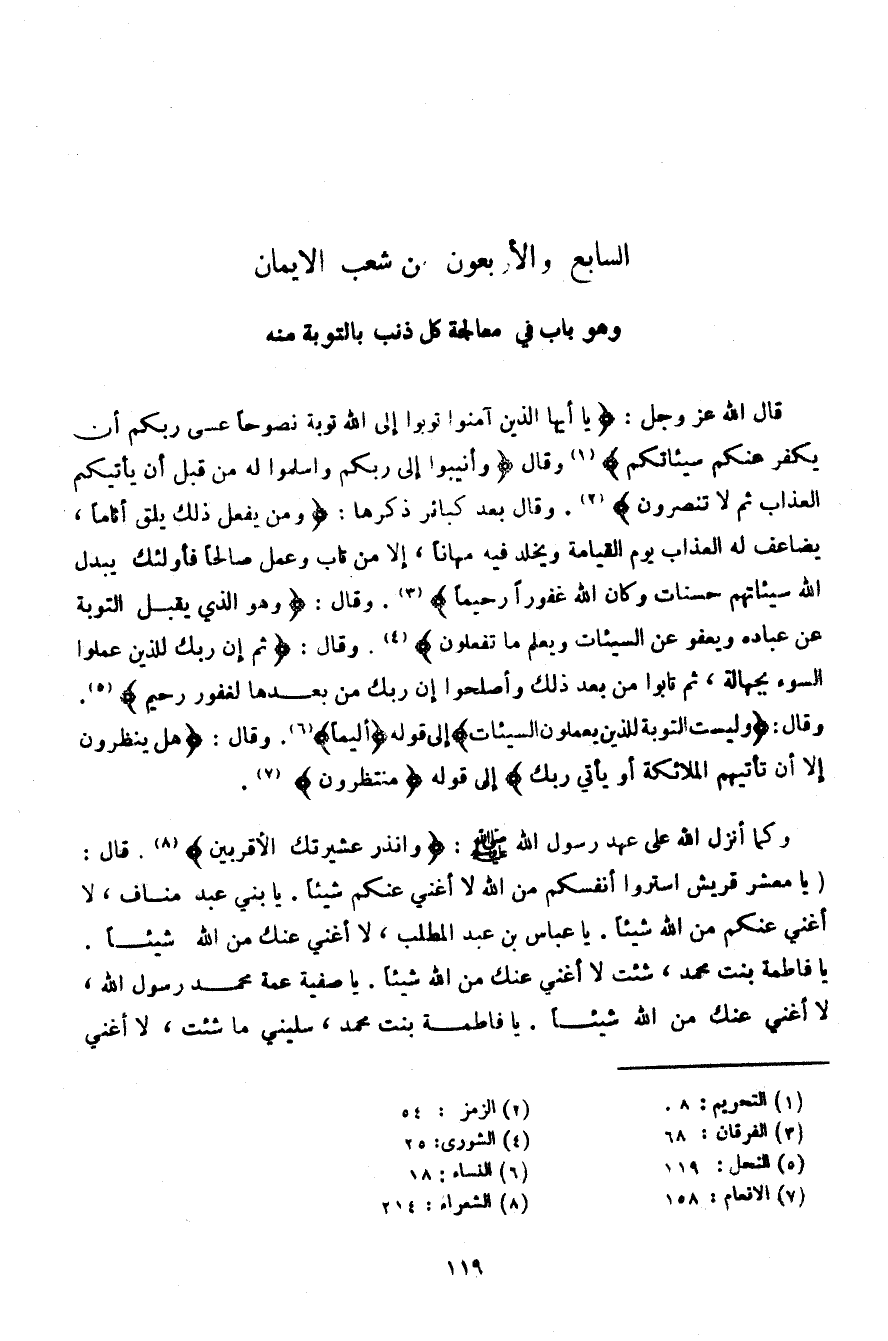 السابع والأربعون من شعب الايمان
وهو باب في معالجة كل ذنب بالتوبة منه
قال الله عز وجل : ﴿ يا أيها الذين آمنوا توبوا إلى الله توبة نصوحاً عسى ربكم أن
يكفر عنكم سيئاتكم ﴾ (١) وقال ﴿ وأنيبوا إلى ربكم واسلموا له من قبل أن يأتيكم
العذاب ثم لا تنصرون ﴾ (٢) . وقال بعد كبائر ذكرها : ﴿ ومن يفعل ذلك يلق أثاماً ،
يضاعف له العذاب يوم القيامة ويخلد فيه مهاناً ، إلا من تاب وعمل صالحاً فأولئك يبدل
الله سيئاتهم حسنات وكان الله غفوراً رحيماً ﴾ (٣) . وقال : ﴿ وهو الذي يقبل التوبة
عن عباده ويعفو عن السيئات ويعلم ما تفعلون ﴾ (٤) . وقال : ﴿ ثم إن ربك للذين عملوا
السوء بجهالة ، ثم تابوا من بعد ذلك وأصلحوا إن ربك من بعدها لغفور رحيم ﴾ (٥) .
وقال : ﴿ وليست التوبة للذين يعملون السيئات ﴾ إلى قوله ﴿ أليماً ﴾ (٦) . وقال : ﴿ هل ينظرون
إلا أن تأتيهم الملائكة أو يأتي ربك ﴾ إلى قوله ﴿ منتظرون ﴾ (٧) .
وكما أنزل الله على عهد رسول الله ﷺ : ﴿ وانذر عشيرتك الأقربين ﴾ (٨) . قال :
( يا معشر قريش استروا أنفسكم من الله لا أغني عنكم شيئاً . يا بني عبد مناف ، لا
أغني عنكم من الله شيئاً . يا عباس بن عبد المطلب ، لا أغني عنك من الله شيئاً .
يا فاطمة بنت محمد ، شئت لا أغني عنك من الله شيئاً . يا صفية عمة محمد رسول الله ،
لا أغني عنك من الله شيئاً . يا فاطمة بنت محمد ، سليني ما شئت ، لا أغني
(١) التحريم : ٨ . (٢) الزمز : ٥٤
(٣) الفرقان : ٦٨ (٤) الشورى : ٢٥
(٥) النحل : ١١٩ (٦) النساء : ١٨
(٧) الانعام : ١٥٨ (٨) الشعراء : ٢١٤
١١٩